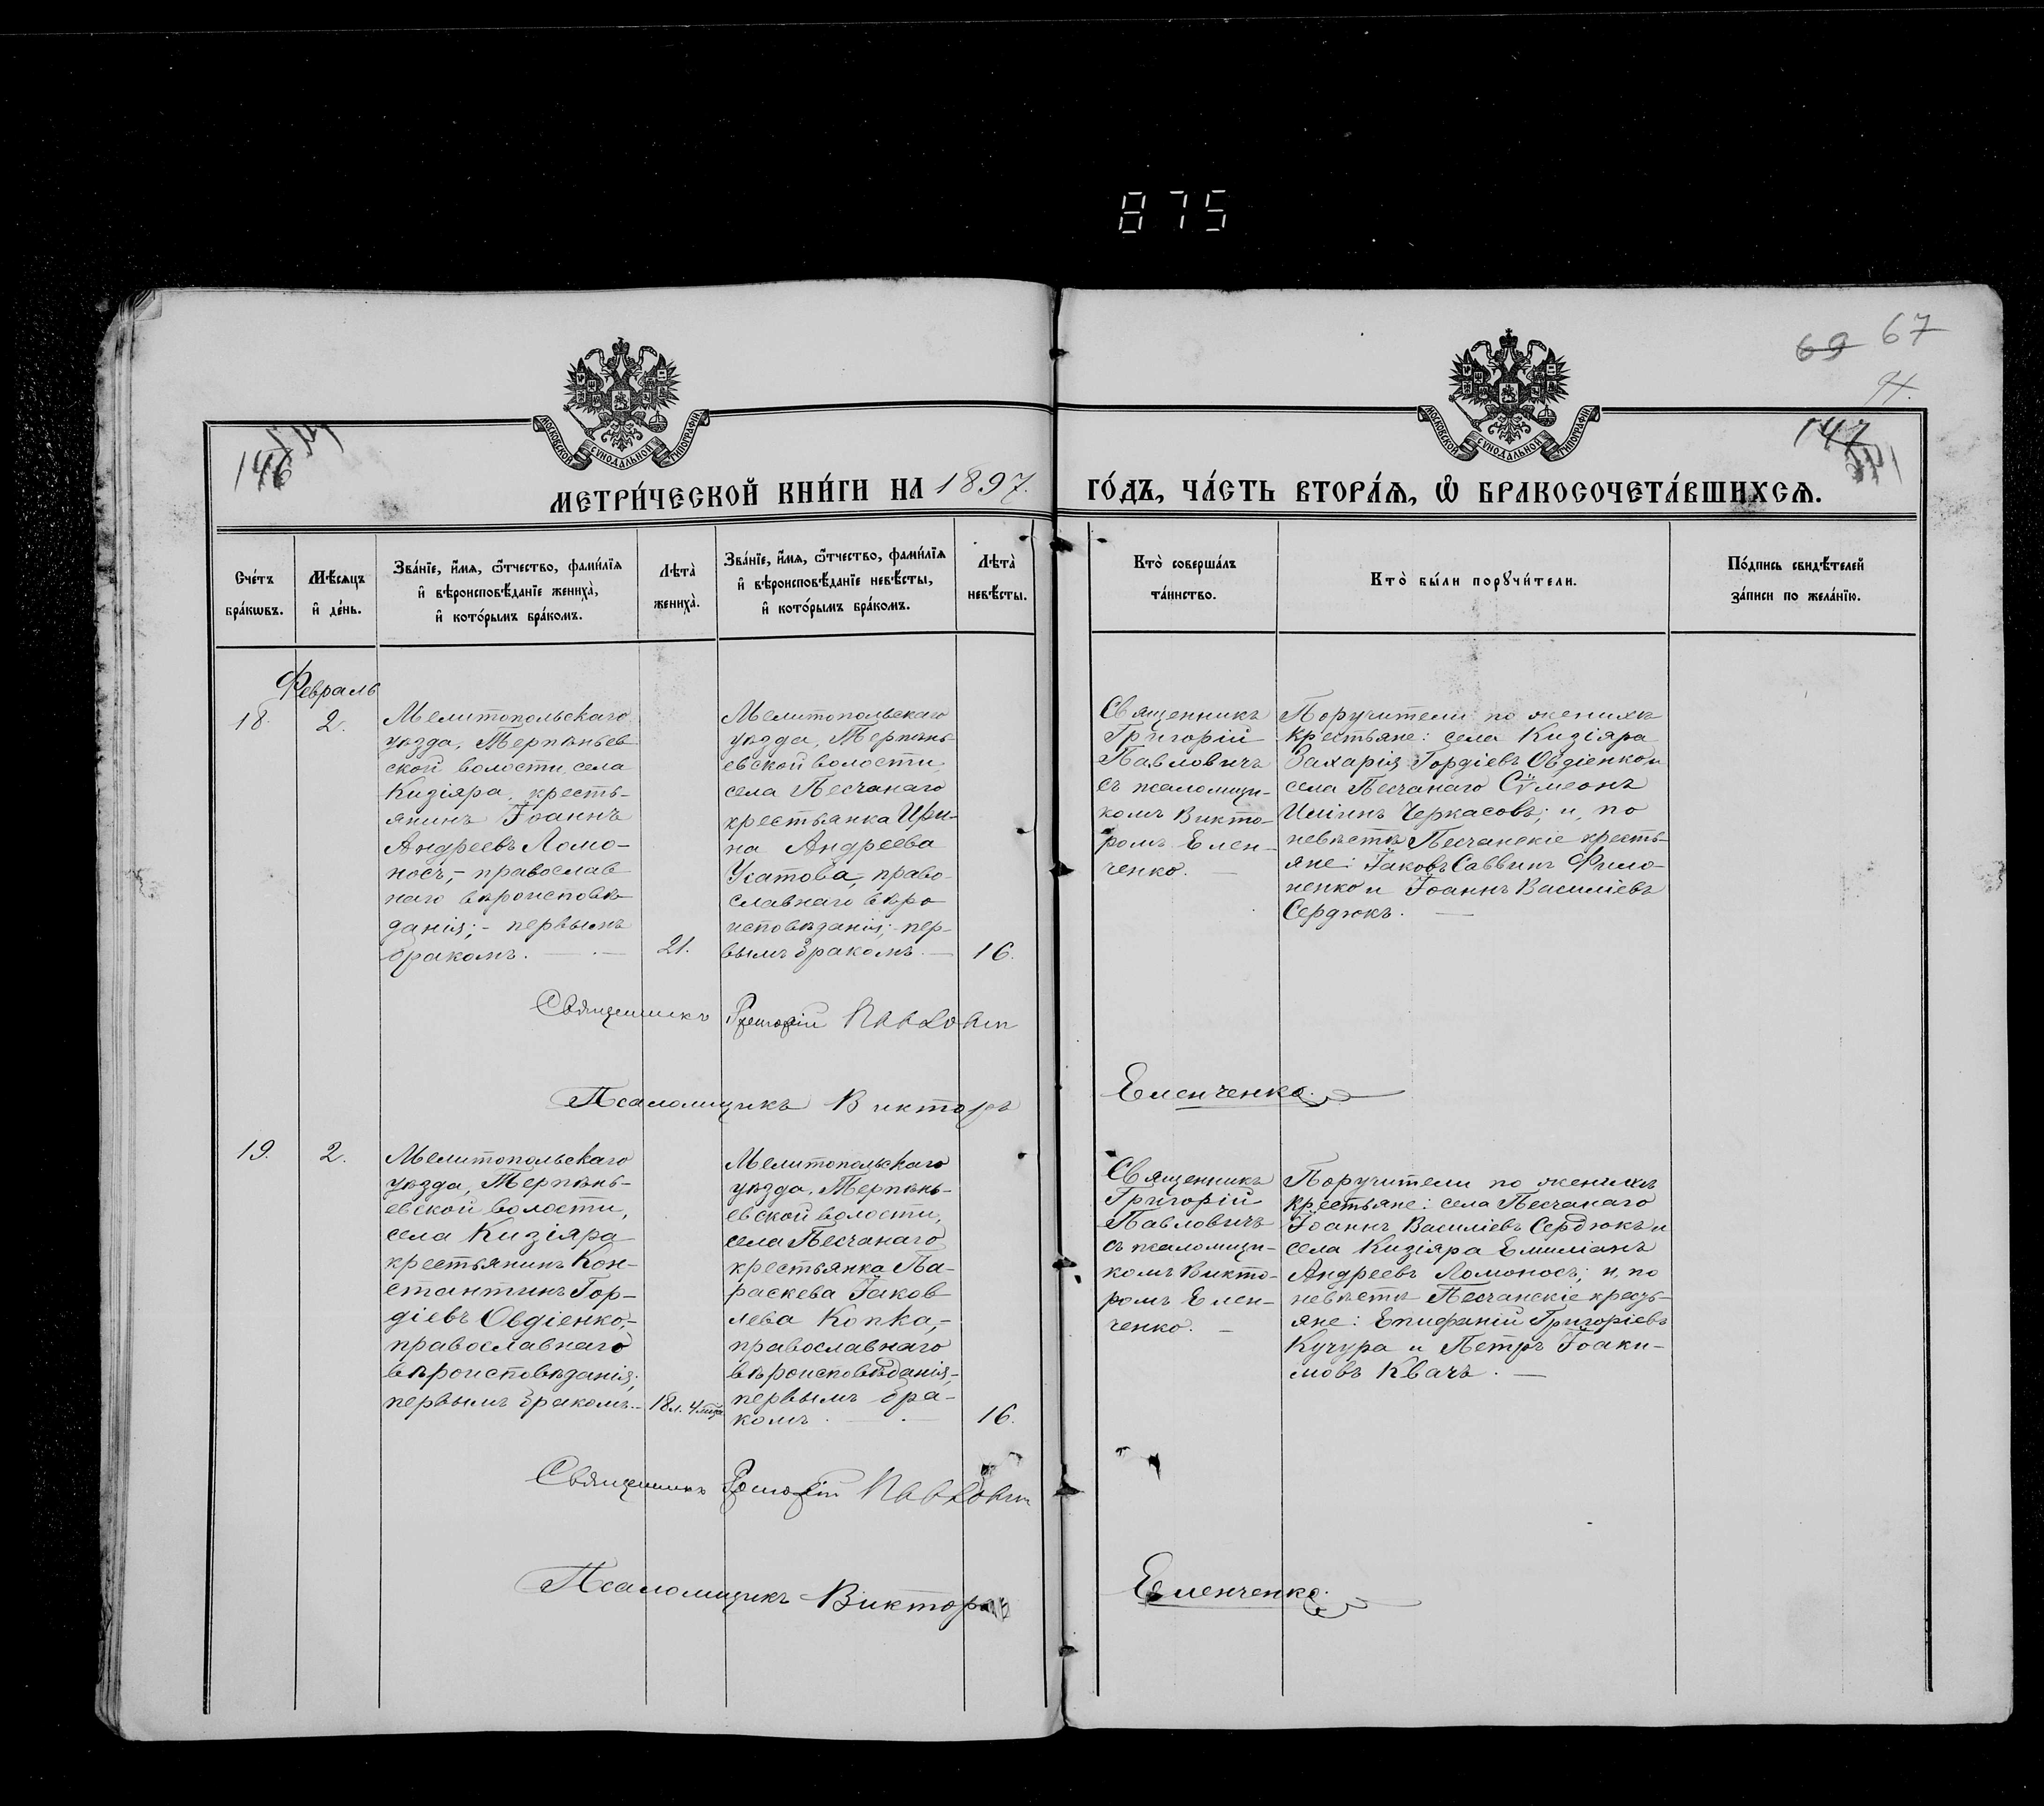 875
69 67
146
147
МОСКОВСКОЙ СѴНОДАЛЬНОЙ ТИПОГРАФІИ
МОСКОВСКОЙ СѴНОДАЛЬНОЙ ТИПОГРАФІИ
МЕТРИ́ЧЕСКОЙ КНИ́ГИ НА 1897. ГО́ДЪ, ЧА́СТЬ ВТОРА́Ѧ, Ѽ БРАКОСОЧЕТА́ВШИХСѦ.
Сче́тъ
бра́кѡвъ.
Мѣ́сяцъ
и҆ де́нь.
Зва́нїе, и҆́мѧ, ѻ҆́тчество, фами́лїѧ
и҆ вѣроисповѣ́данїе жениха̀,
и҆ кото́рымъ бра́комъ.
Лѣта̀
жениха̀.
Зва́нїе, и҆́мѧ, ѻ҆́тчество, фами́лїѧ
и҆ вѣроисповѣ́данїе невѣ́сты,
и҆ кото́рымъ бра́комъ.
Лѣта̀
невѣ́сты.
Кто̀ соверша́лъ
та́инство.
Кто̀ бы́ли порꙋчи́тели.
По́дпись свидѣ́телей
за́писи по жела́нїю.
Февраль
18.
2.
Мелитопольскаго
уѣзда, Терпѣньев
ской волости, села
Кизіяра, кресть-
янинъ Іоаннъ
Андреевъ Ломо-
носъ,- православ
наго вѣроисповѣ-
данія;- первымъ
бракомъ.
21.
Мелитопольскаго
уѣзда, Терпѣнь-
евской волости,
села Песчанаго
крестьянка Ири-
на Андреева
Усатова, право-
славнаго вѣро
исповѣданія; пер-
вымъ бракомъ.
16.
Священникъ
Григорій
Павловичъ
съ псаломщи-
комъ Викто-
ромъ Елен-
ченко.
Поручители по женихѣ
крестьяне: села Кизіяра
Захарія Гордіевъ Овдіенко и
села Песчанаго Сѵмеонъ
Иліинъ Черкасовъ; и, по
невѣстѣ Песчанскіе кресть-
яне: Іаковъ Саввинъ Фило-
ненко и Іоаннъ Василіевъ
Сердюкъ.
Священникъ Григорій Павлович
Псаломщикъ Викторъ Еленченко.
19.
2.
Мелитопольскаго
уѣзда, Терпѣнь-
евской волости,
села Кизіяра
крестьянинъ Кон-
стантинъ Гор-
діевъ Овдіенко,-
православнаго
вѣроисповѣданія;
первымъ бракомъ.
18 л. 4 мѣца
Мелитопольскаго
уѣзда, Терпѣнь-
евской волости,
села Песчанаго
крестьянка Па-
раскева Іаков
лева Копка,-
православнаго
вѣроисповѣданія,-
первымъ бра-
комъ.
16.
Священникъ
Григорій
Павловичъ
съ псаломщи-
комъ Викто-
ромъ Елен-
ченко.
Поручители по женихѣ
крестьяне: села Песчанаго
Іоаннъ Василіевъ Сердюкъ и
села Кизіяра Емиліанъ
Андреевъ Ломоносъ; и, по
невѣстѣ Песчанскіе кресть-
яне: Епифаній Григоріевъ
Кучура и Петръ Іоаки-
мовъ Квачъ.
Священникъ Григорій Павлович
Псаломщикъ Викторъ Еленченко.